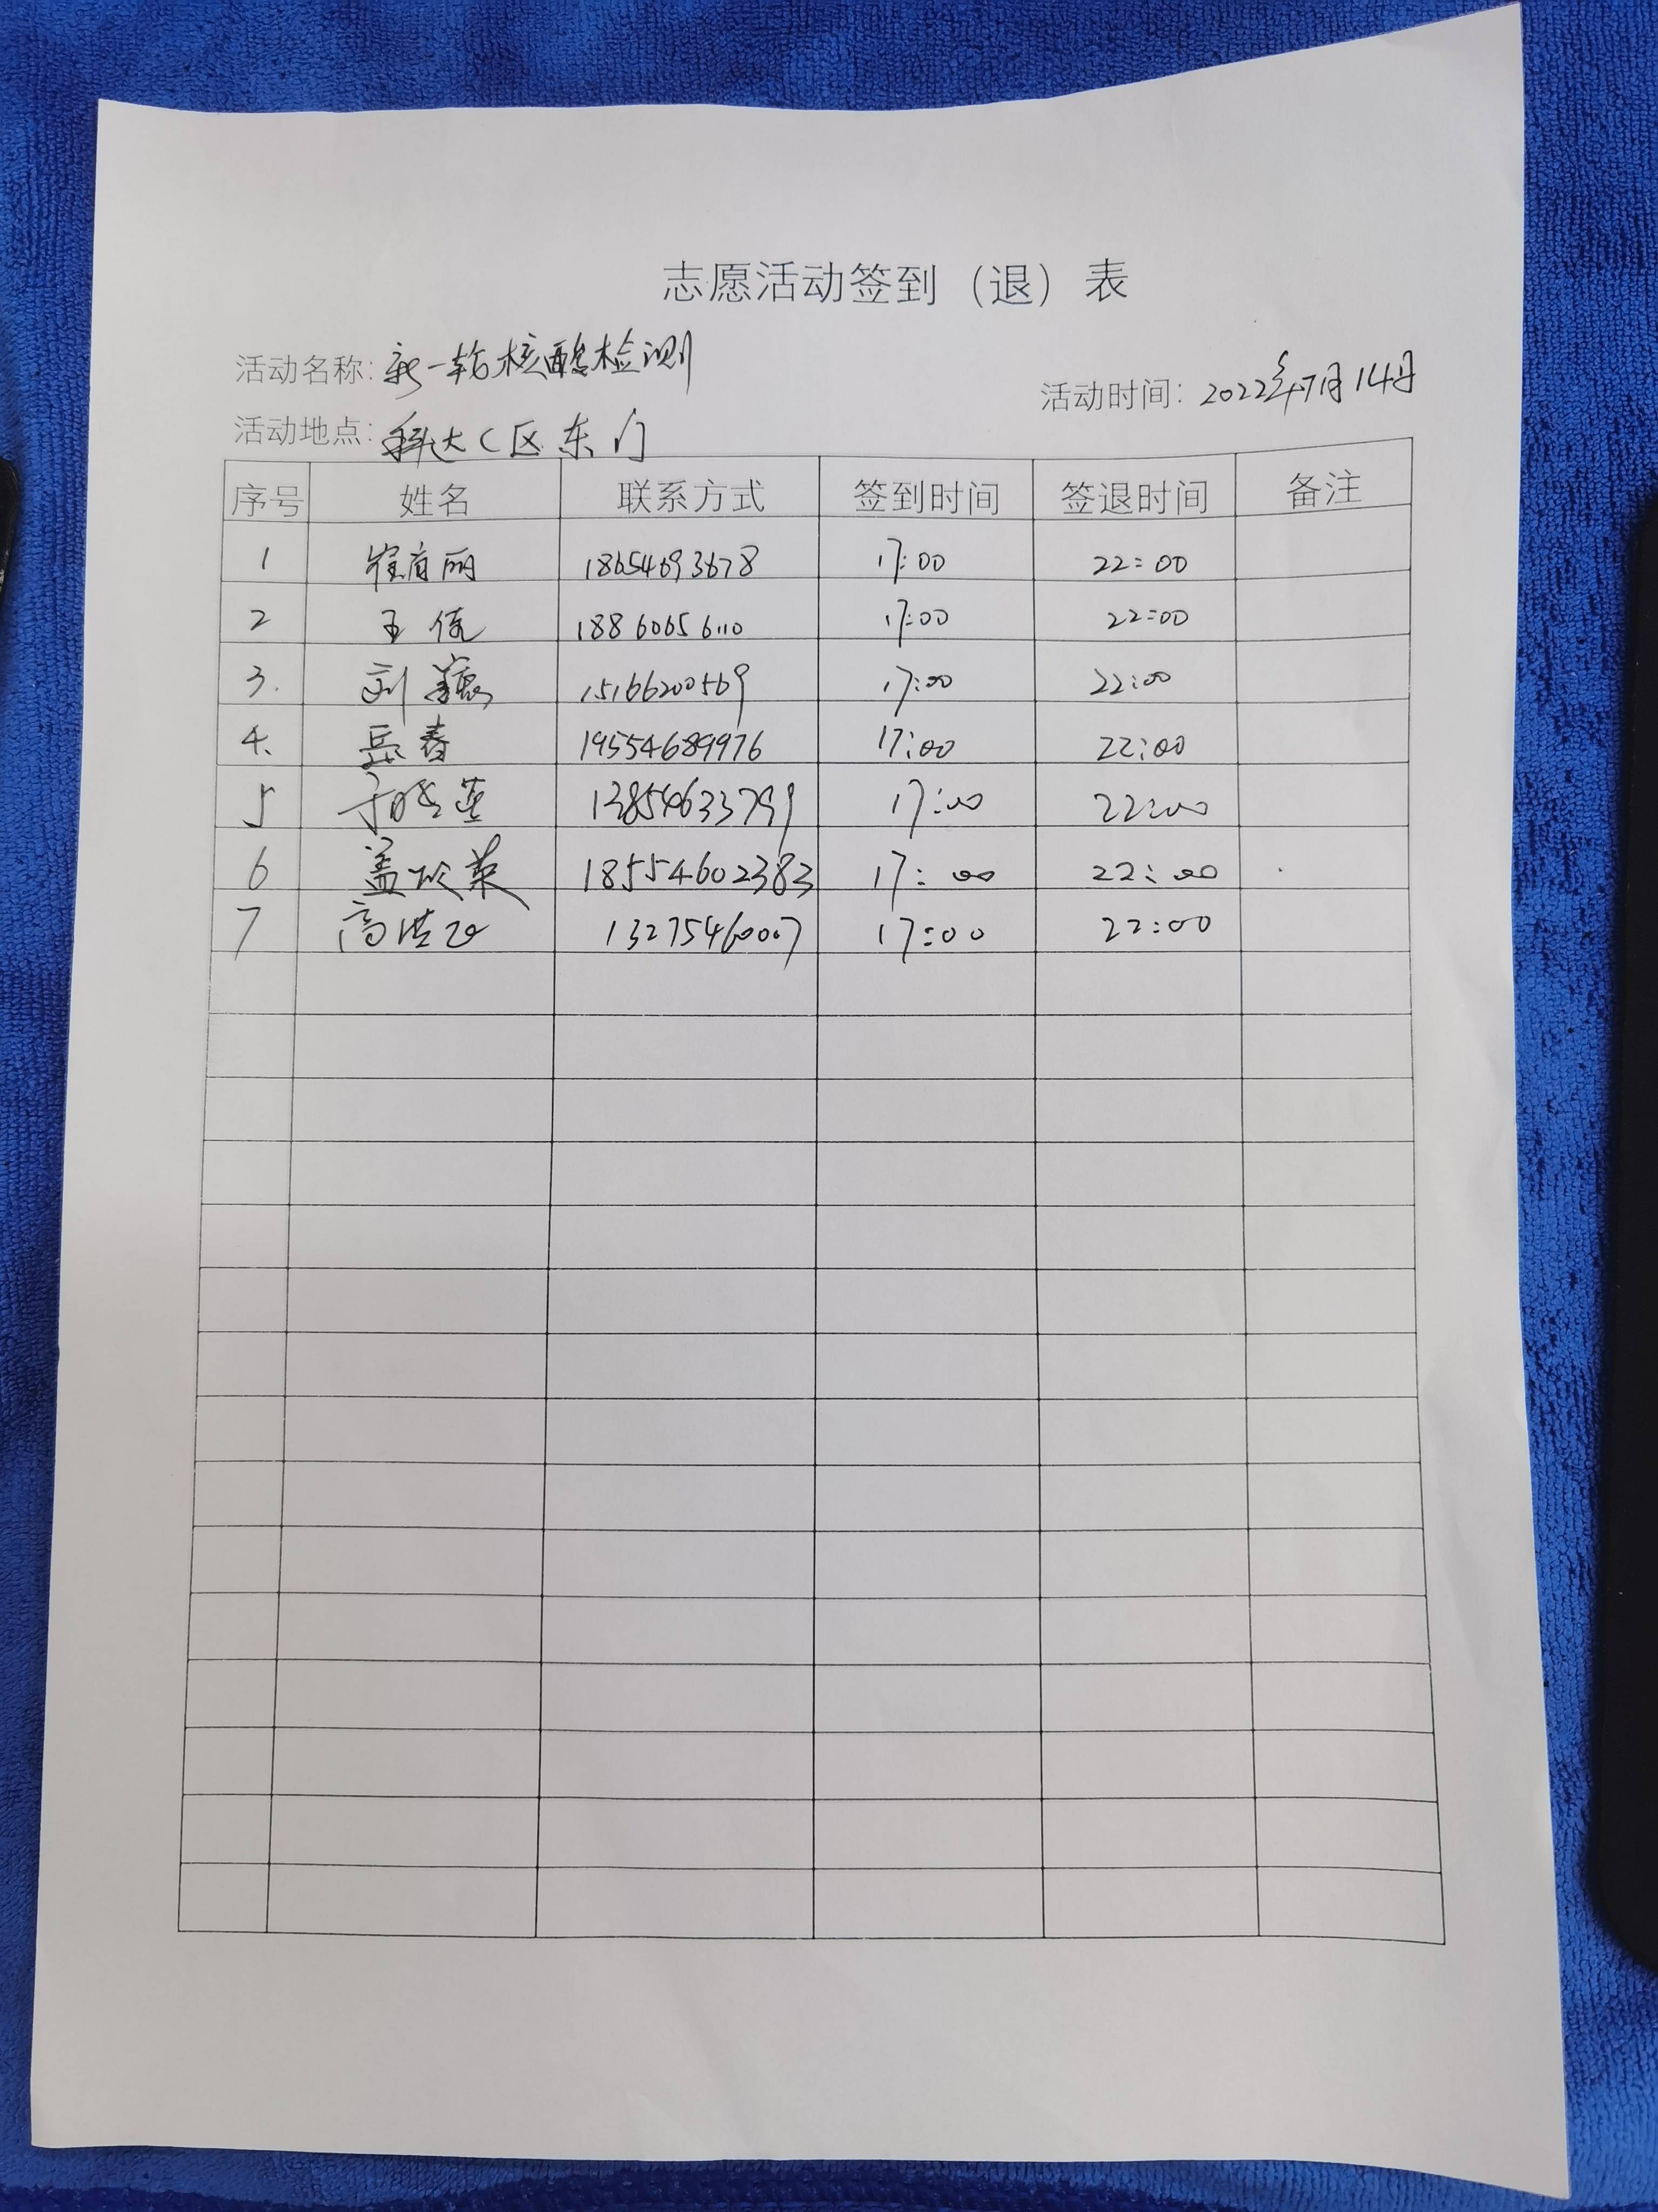 志愿活动签到（退）表
活动名称：新一轮核酸检测
活动时间：2022年7月14日
活动地点：科大C区东门
序号 姓名 联系方式 签到时间 签退时间 备注
1 崔育丽 18654693678 17:00 22:00
2 王倩 18860656110 17:00 22:00
3. 刘 15166200569 17:00 22:00
4、 岳春 19554689976 17:00 22:00
5 13854633799 17:00 22:00
6 盖 18554602383 17:00 22:00
7 高洪 13275460007 17:00 22:00